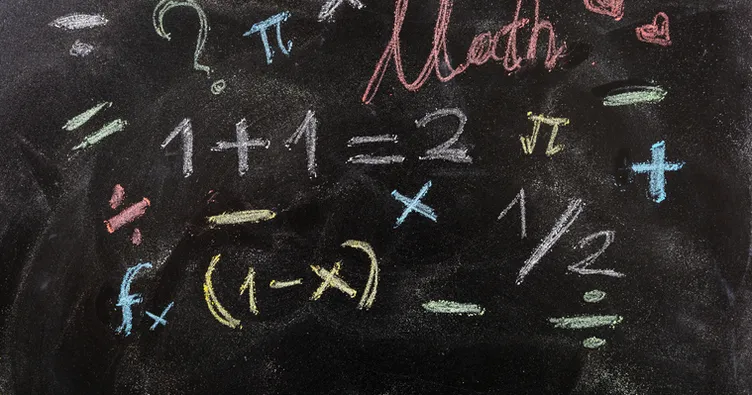 ? π Math
= 1 + 1 = 2 π +
÷ − × 1/2
fx (1-x) − ÷